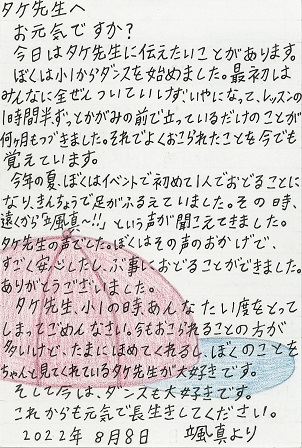 タケ先生へ
お元気ですか?
今日はタケ先生に伝えたいことがあります。
ぼくは小1からダンスを始めました。最初は
みんなに全ぜんついていけずいやになって、レッスンの
1時間半ずっとかがみの前で立っているだけのことが
何ヶ月もつづきました。それでよくおこられたことを今でも
覚えています。
今年の夏、ぼくはイベントで初めて1人でおどることに
なり、きんちょうで足がふるえていました。その時、
遠くから「颯真~!!」という声が聞こえてきました。
タケ先生の声でした。ぼくはその声のおかげで、
すごく安心したし、ぶ事におどることができました。
ありがとうございました。
タケ先生、小1の時、あんなたい度をとって
しまってごめんなさい。今もおこられることの方が
多いけど、たまにほめてくれるし、ぼくのことを
ちゃんと見てくれているタケ先生が大好きです。
そして今は、ダンスも大好きです。
これからも元気で長生きしてください。
2022年8月8日 颯真より